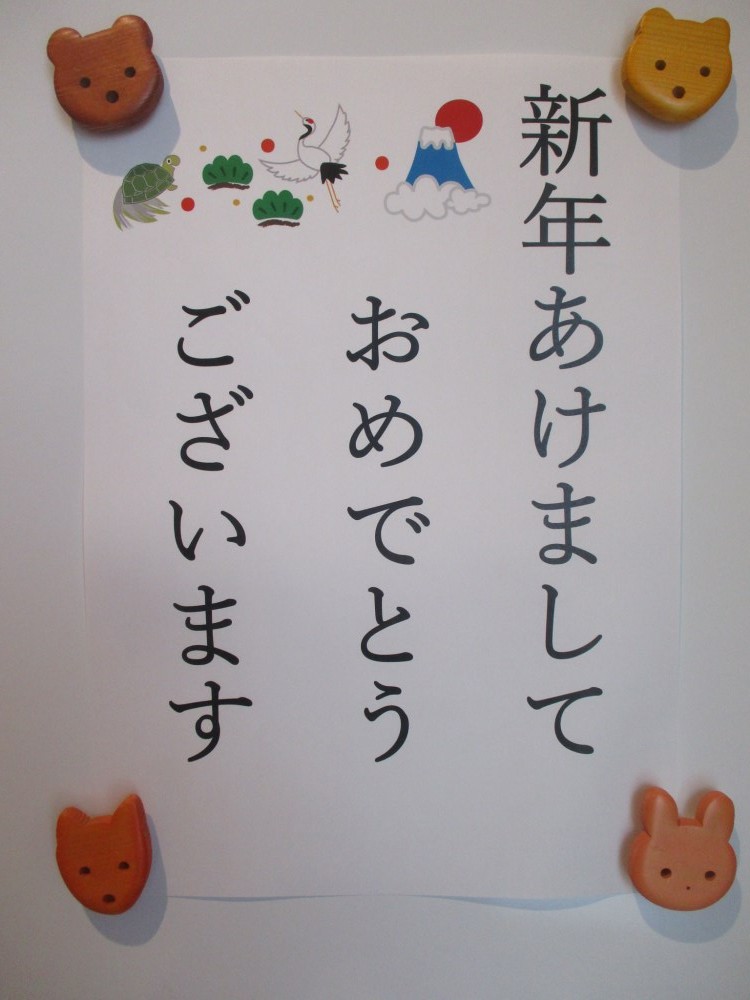 新年あけまして
おめでとう
ございます